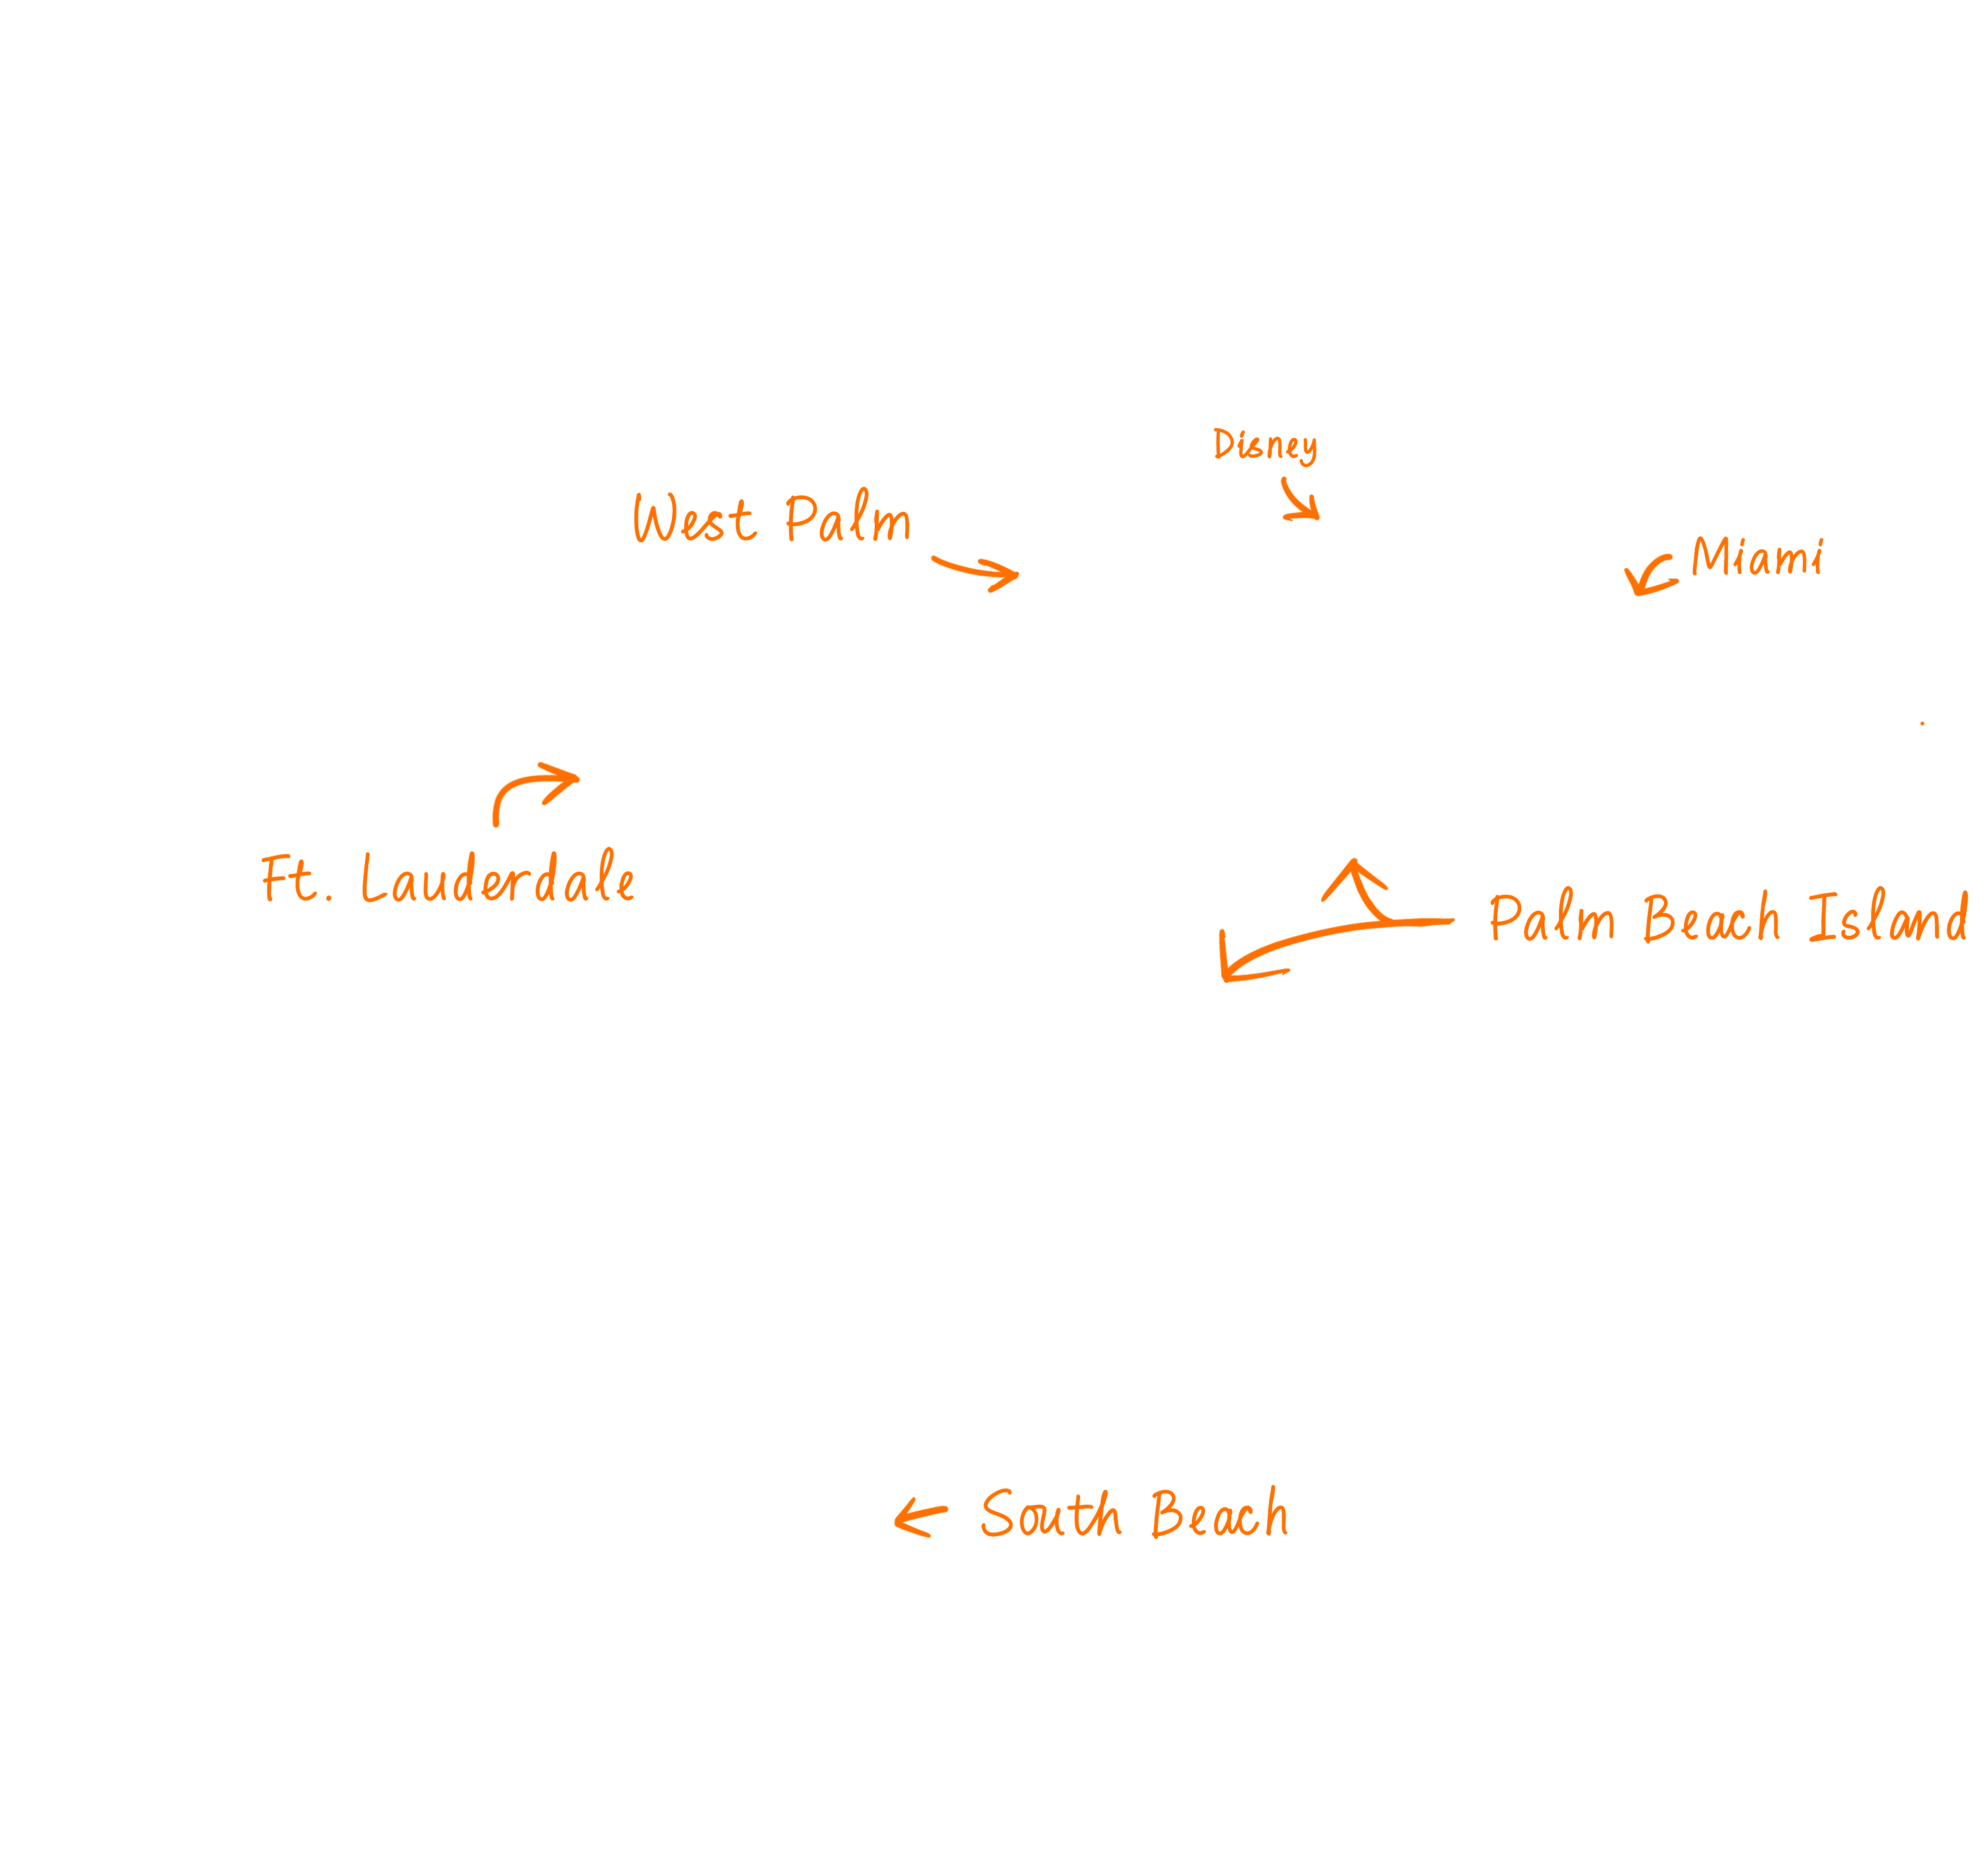 Disney
West Palm
Miami
Ft. Lauderdale
Palm Beach Island
South Beach